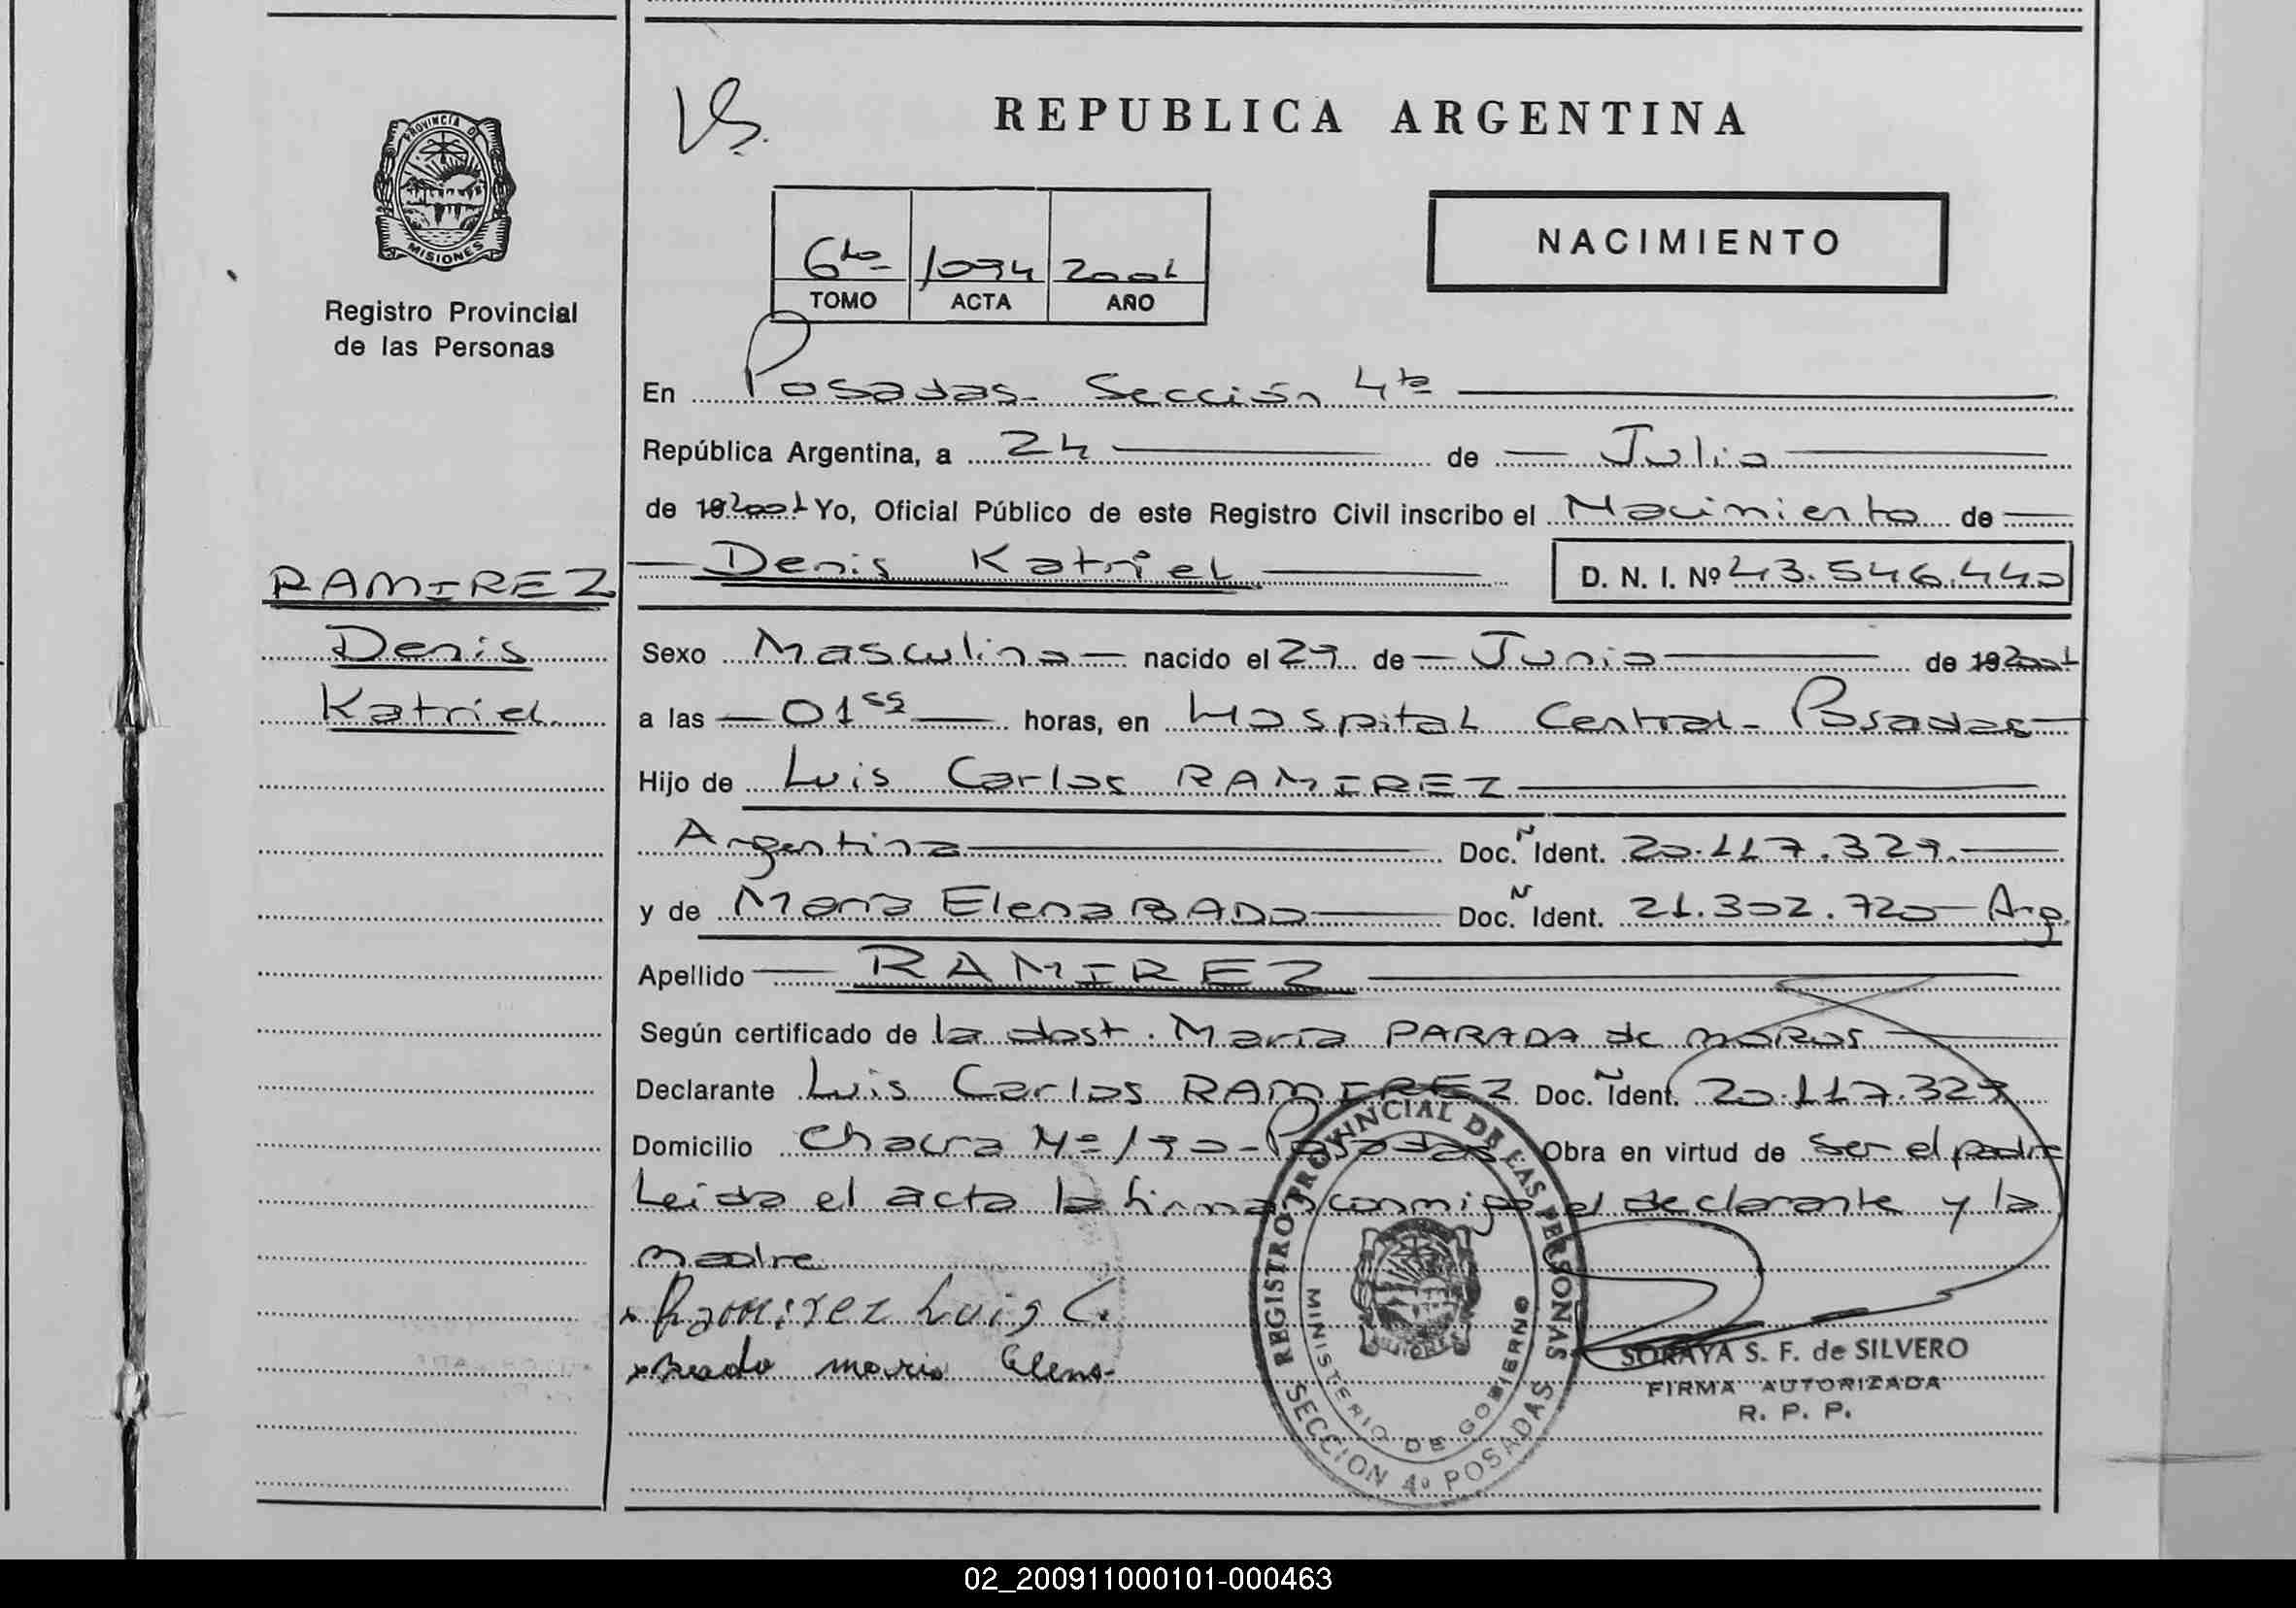 REPUBLICA ARGENTINA
PROVINCIA D
MISIONES
Registro Provincial
de las Personas
6to
1094
2001
TOMO
ACTA
AÑO
NACIMIENTO
En Posadas Sección 4ta
República Argentina, a 24 de Julio
de 19 2001 Yo, Oficial Público de este Registro Civil inscribo el Nacimiento de
Denis Katriel D. N. I. Nº 43.546.440
RAMIREZ
Denis
Katriel
Sexo Masculino nacido el 29 de Junio de 19 2001
a las 01 55 horas, en Hospital Central - Posadas
Hijo de Luis Carlos RAMIREZ
Argentina Doc. Ñ Ident. 20.117.329.
y de María Elena BADO Doc. N Ident. 21.302.720 Arg.
Apellido RAMIREZ
Según certificado de la obst. María PARADA de MOROS
Declarante Luis Carlos RAMIREZ Doc. Ident. 20.117.329
Domicilio Chacra Nº 190 - Posadas Obra en virtud de ser el padre
Leida el acta la firman conmigo el declarante y la
madre
x Ramirez Luis C.
x Bado maria Elena
REGISTRO PROVINCIAL DE LAS PERSONAS
MINISTERIO DE GOBIERNO
MISIONES
SECCION 4º POSADAS
SORAYA S. F. de SILVERO
FIRMA AUTORIZADA
R. P. P.
02_200911000101-000463